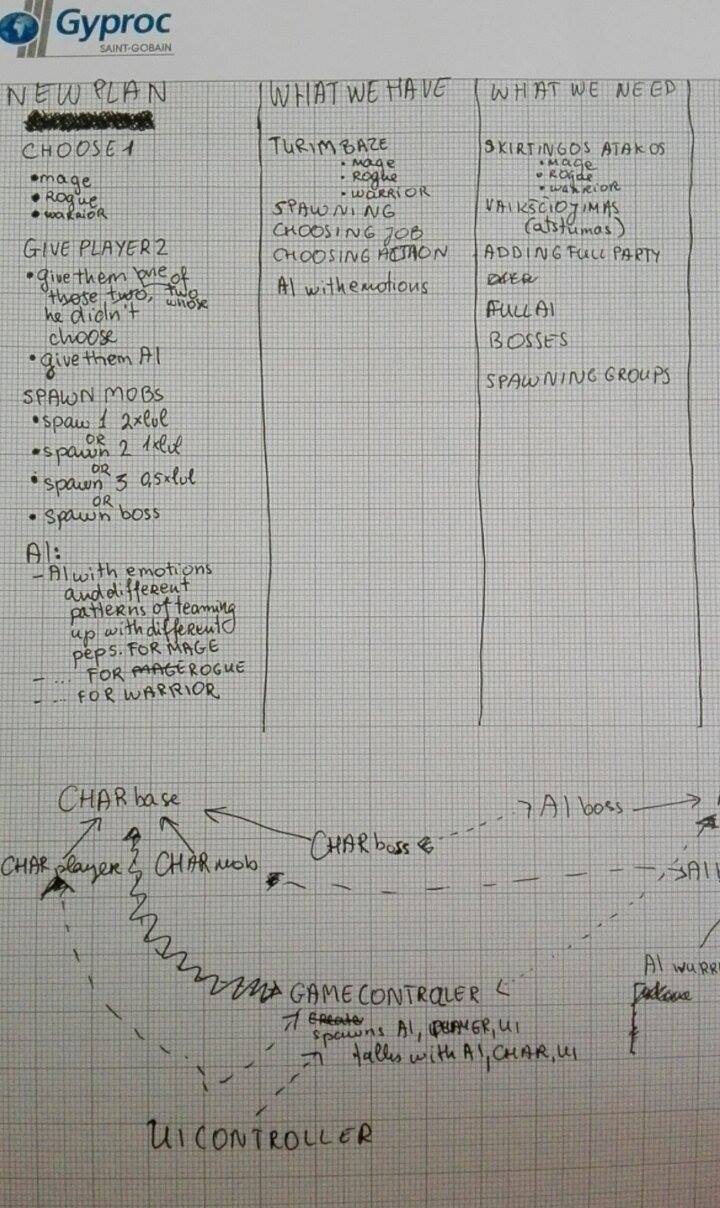 Gyproc
SAINT-GOBAIN
NEW PLAN
CHOOSE 1
• mage
• ROgue
• WARRIOR
GIVE PLAYER 2
• give them one of
those two, two whose
he didn't
choose
• give them AI
SPAWN MOBS
• spaw 1 2xlvl
OR
• spawn 2 1xlvl
OR
• spawn 3 0,5xlvl
OR
• spawn boss
AI:
- AI with emotions
and different
patterns of teaming
up with different
peps. FOR MAGE
- ... FOR MAGE ROGUE
- ... FOR WARRIOR
WHAT WE HAVE
TURIM BAZE
• MAGE
• ROgue
• WARRIOR
SPAWNING
CHOOSING JOB
CHOOSING ACTION
AI with emotions
WHAT WE NEED
SKIRTINGOS ATAKOS
• MAGE
• ROgue
• WARRIOR
VAIKŠČIOJIMAS
(atstumas)
ADDING FULL PARTY
FULL AI
BOSSES
SPAWNING GROUPS
CHAR base
AI boss
CHAR boss
CHAR player
CHAR mob
AI
AI WURRI
GAMECONTROLER
Create
spawns AI, PLAYER, UI
talks with AI, CHAR, UI
UI CONTROLLER